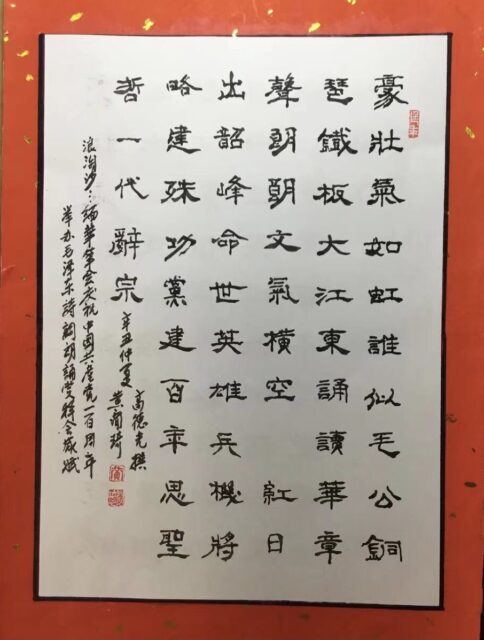 豪壯氣如虹誰似毛公銅
琶鐵板大江東誦讀華章
聲朗朗文氣橫空 紅日
出韶峰命世英雄兵機將
略建殊功黨建百年思聖
哲一代辭宗
辛丑仲夏 高德光撰
黄
浪淘沙：缅華筆会庆祝中国共产党一百周年
举办毛泽东詩詞朗誦赏释会感赋